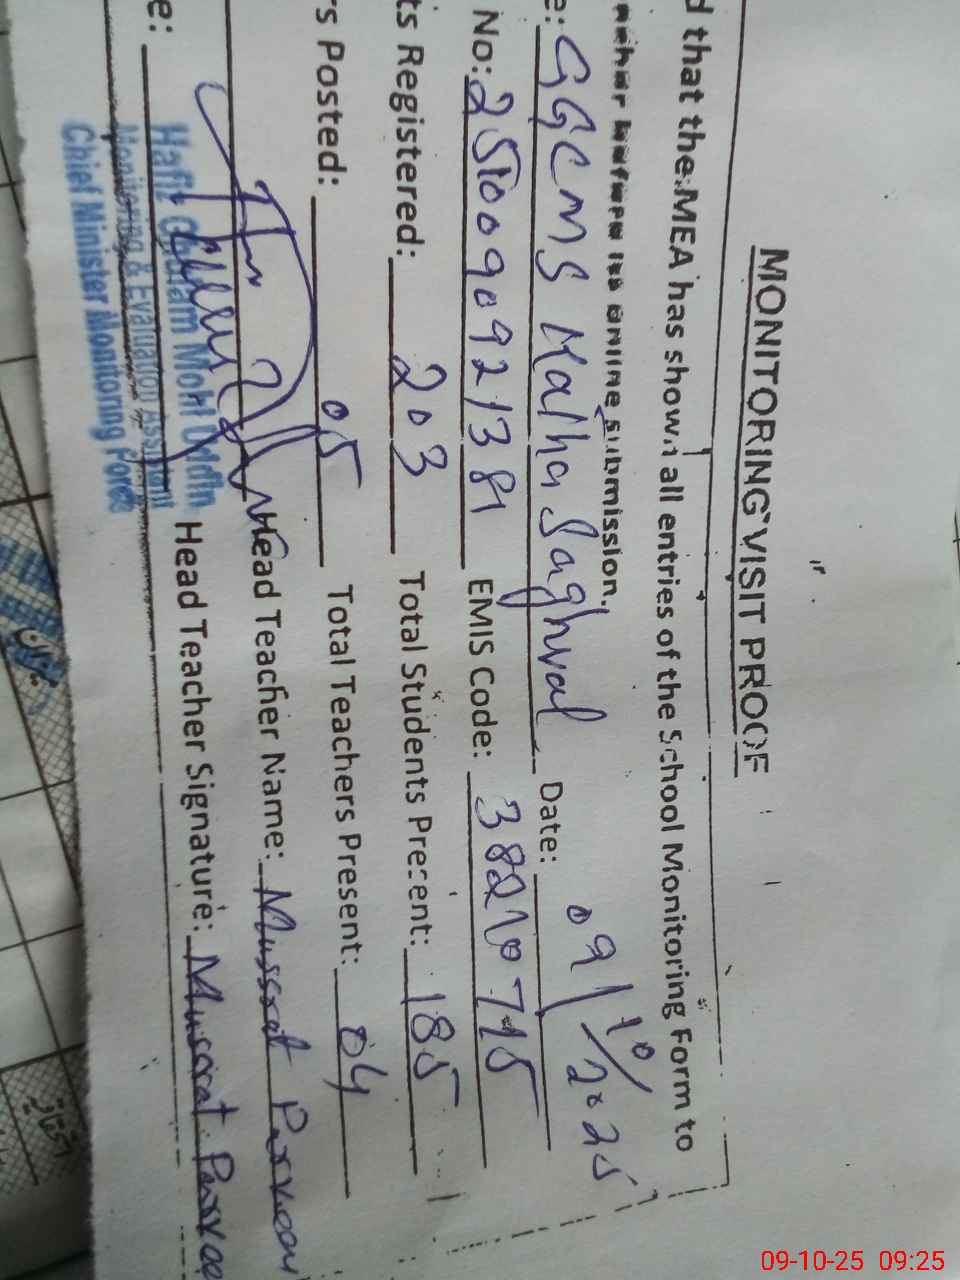 MONITORING VISIT PROOF
d that the MEA has shown all entries of the School Monitoring Form to
before its online submission.
e: GGCMS Malha Saghral Date: 09/10/2025
No: 2510090921381 EMIS Code: 38210715
ts Registered: 203 Total Students Present: 185
rs Posted: 05 Total Teachers Present: 04
Head Teacher Name: Mussrat Parveen
e: Head Teacher Signature: Mussrat Parvee
Hafiz Ghulam Mohi Uddin
Monitoring & Evaluation Assistant
Chief Minister Monitoring Force
09-10-25 09:25